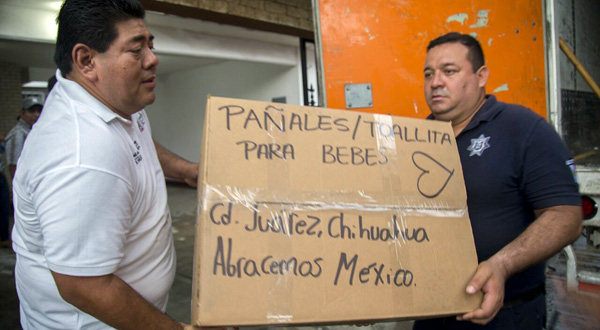 PAÑALES/TOALLITA
PARA BEBES
Cd. Juárez, Chihuahua
Abracemos México.